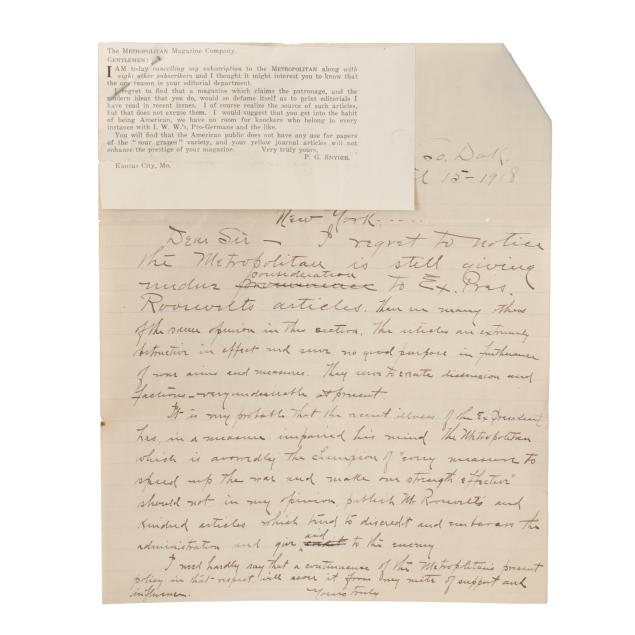 The METROPOLITAN Magazine Company.
GENTLEMEN:
I AM today cancelling my subscription to the METROPOLITAN along with
eight other subscribers and I thought it might interest you to know that
the one reason is your editorial department.
I regret to find that a magazine which claims the patronage, and the
modern ideas that you do, would so defame itself as to print editorials I
have read in recent issues. I of course realize the source of such articles,
but that does not excuse them. I would suggest that you get into the habit
of being American, we have no room for knockers who belong in every
instance with I. W. W.'s, Pro-Germans and the like.
You will find that the American public does not have any use for papers
of the "sour grapes" variety, and your yellow journal articles will not
enhance the prestige of your magazine. Very truly yours,
P. G. SNYDER.
Kansas City, Mo.
So. Dak.
15-1918
New York....
Dear Sir - I regret to notice
the Metropolitan is still giving
consideration
undue to Ex. Pres.
Roosevelts articles. There are many others
of the same opinion in this section. The articles are extremely
destructive in effect and serve no good purpose in furtherance
of war aims and measures. They serve to create dissension and
factions - very undesirable at present
It is very probable that the recent illness of the Ex President
has, in a measure impaired his mind. The Metropolitan
which is avowedly the champion of "every measure to
speed up the war and make our strength effective"
should not in my opinion, publish Mr Roosevelts and
kindred articles which tend to discredit and embarass the
aid
administration and give to the enemy
I need hardly say that a continuance of the Metropolitan's present
policy in that respect, will sever it from my mite of support and
influence.
Yours truly